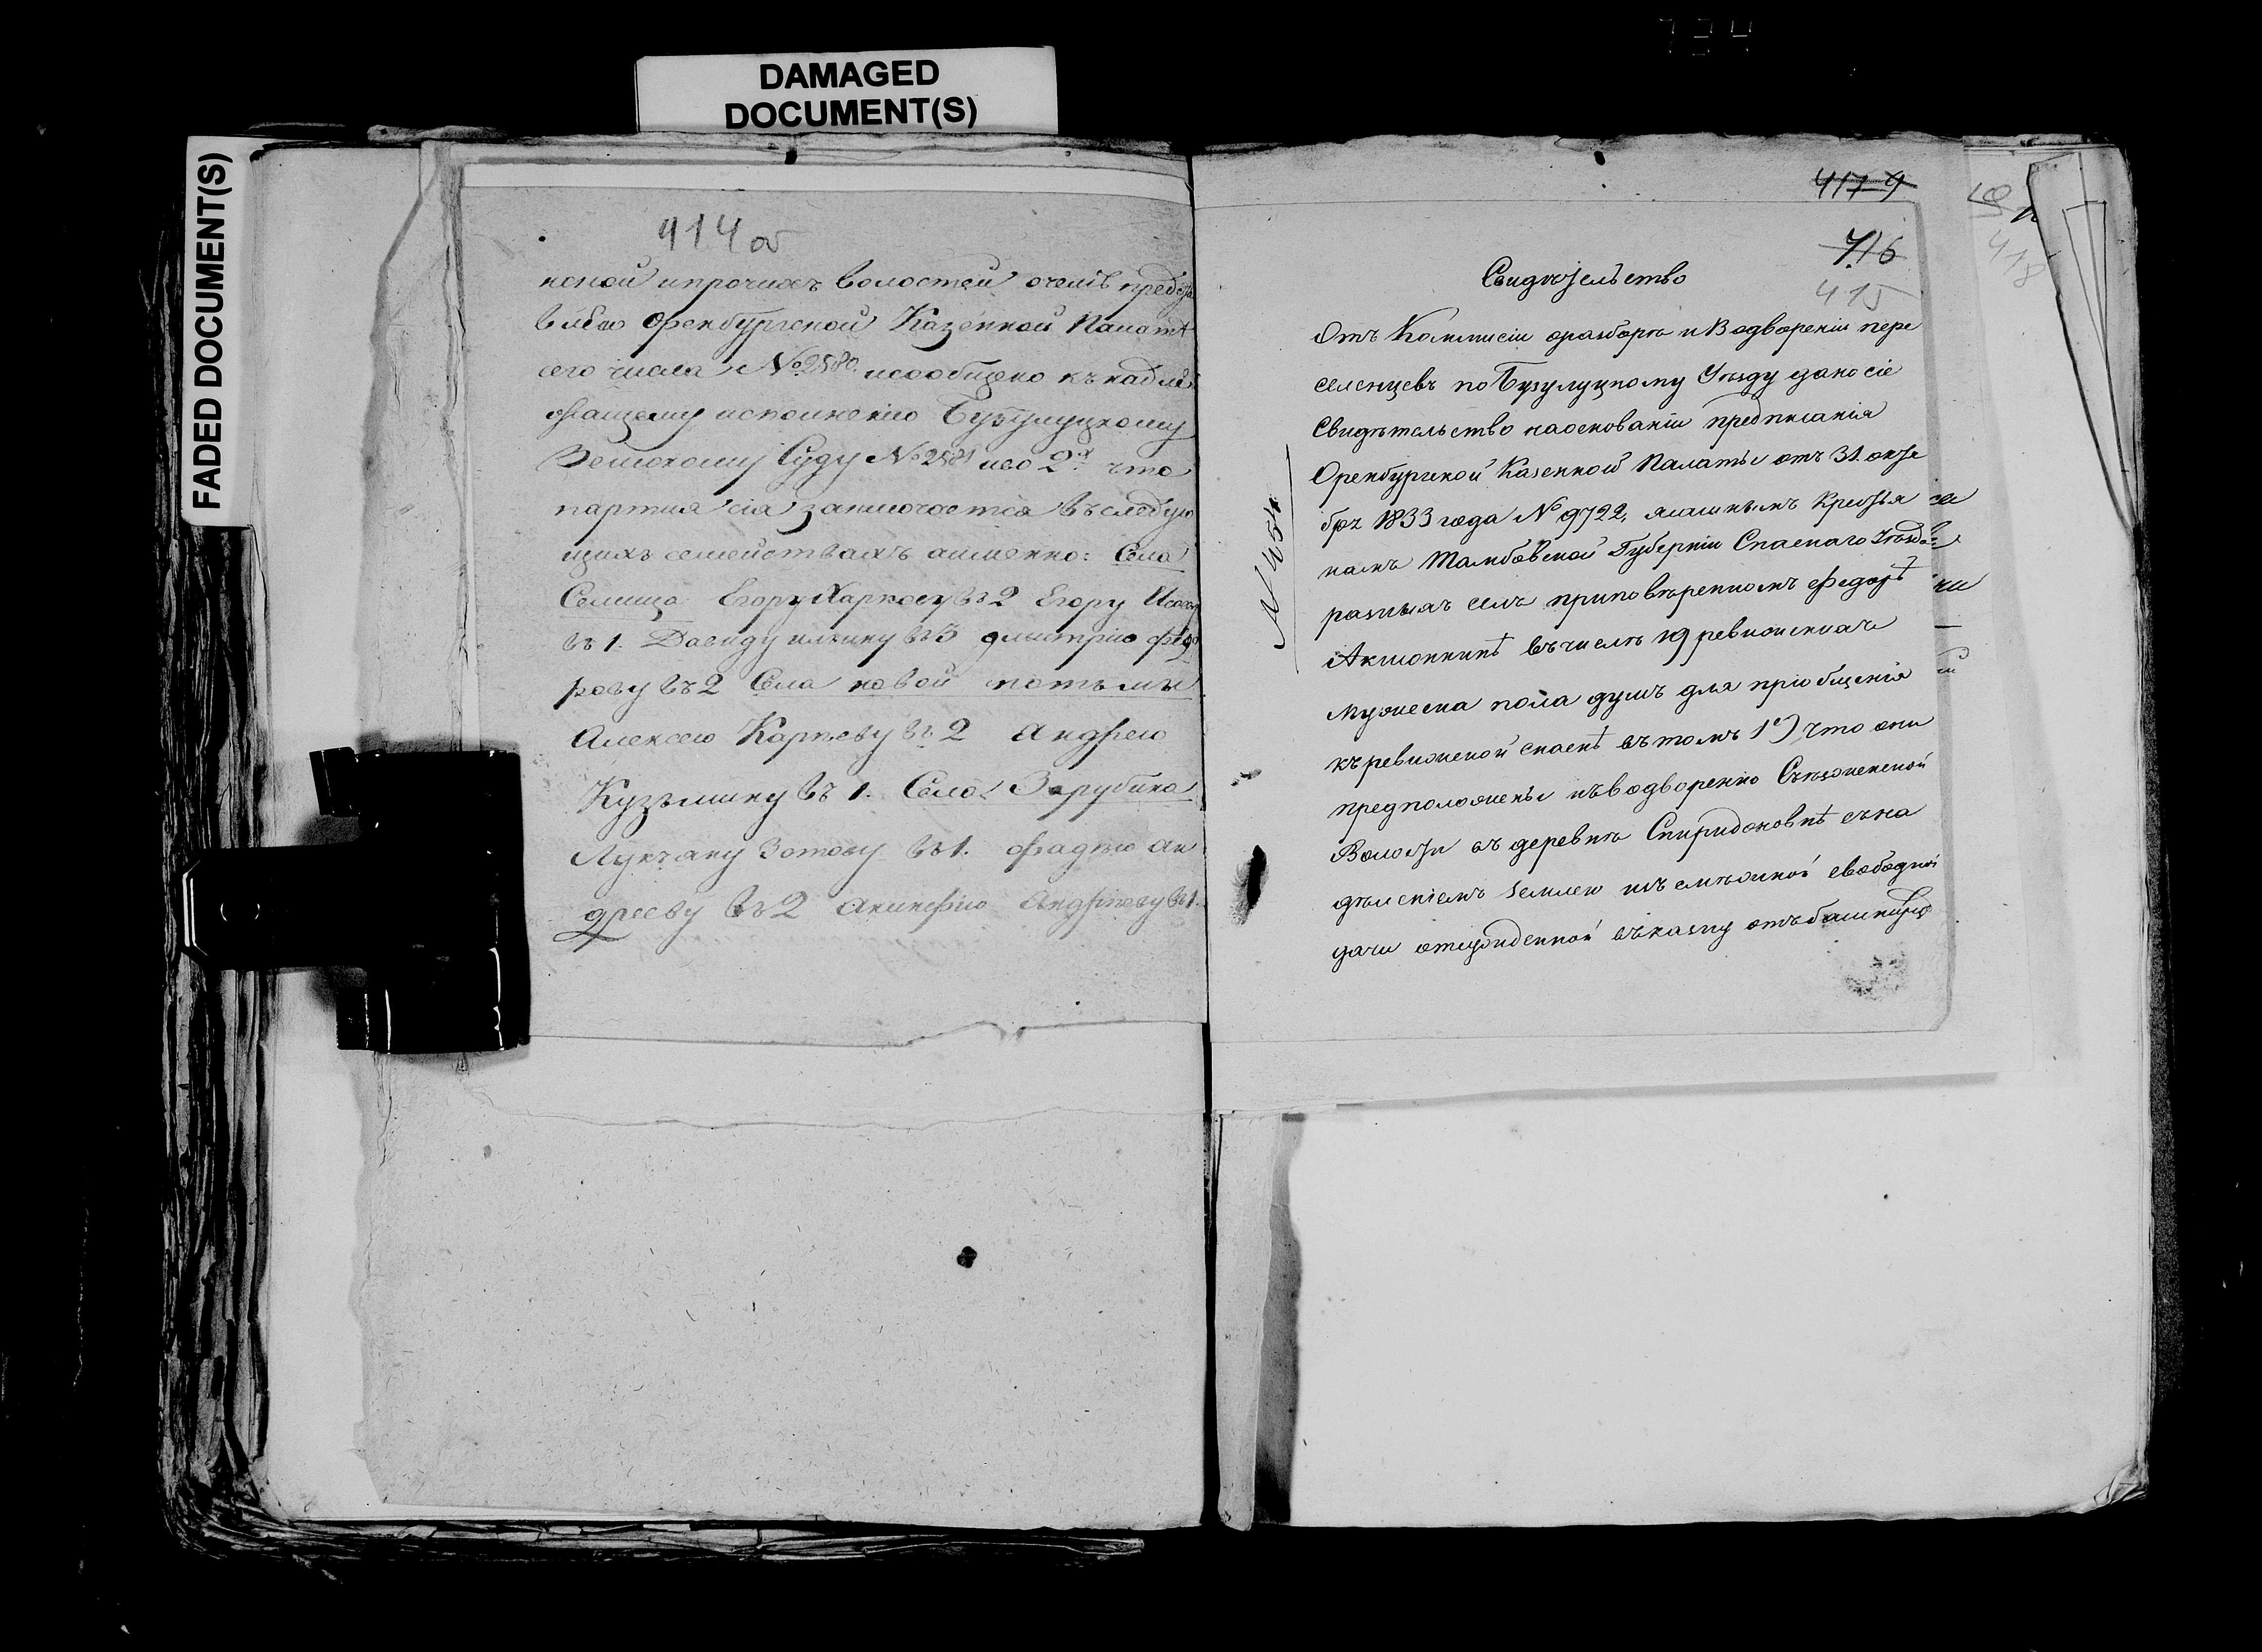 DAMAGED
DOCUMENT(S)
FADED DOCUMENT(S)
414 об
нской ипрочихъ волостей очемъ предста
влѣно Оренбургской Казенной Палатѣ
сего числа №2580. исообщено къ надлѣ
жащему исполненію Бузулуцкому
Земскому Суду №2581 что
партия сія заключается въ следую
щихъ семействахъ аименно: Села
Селища Егору Карпову въ 2 Егору Исаеву
въ 1. Давиду ильину въ 3 дмитрію Федо
рову въ 2 Села новой потьмы
Алексею Карпеву въ 2 Андрею
Кузьмину въ 1. Села Зарубина
Лукьяну Зотову въ 1. Фадѣю ан
дрееву въ 2 акинфию Андрѣеву въ 1.
417 9
716
415
418
Свидѣтельство
Отъ Коммисіи оразборѣ и Водвореніи пере
селенцевъ по Бузулуцкому Уѣзду дано сіе
Свидѣтельство наоснованіи предписанія
Оренбургской Казенной Палаты отъ 31. октя
бря 1833 года № 9722, ясашнымъ Крестья
намъ Тамбовской Губерніи Спаскаго Уѣзда
разныхъ селъ приповѣренномъ Федорѣ
Акшонкинѣ въ числѣ 19 ревижскихъ
Мужеска пола душъ для пріобщенія
къ ревижской скаскѣ въ томъ 1е) что они
предположены къ водворенію Съезженской
Волости въ деревнѣ Спиридоновкѣ съ на
дѣленіемъ землею изъ смѣжной свободной
дачи отсужденной въ казну отъ башкирцо
№ 454